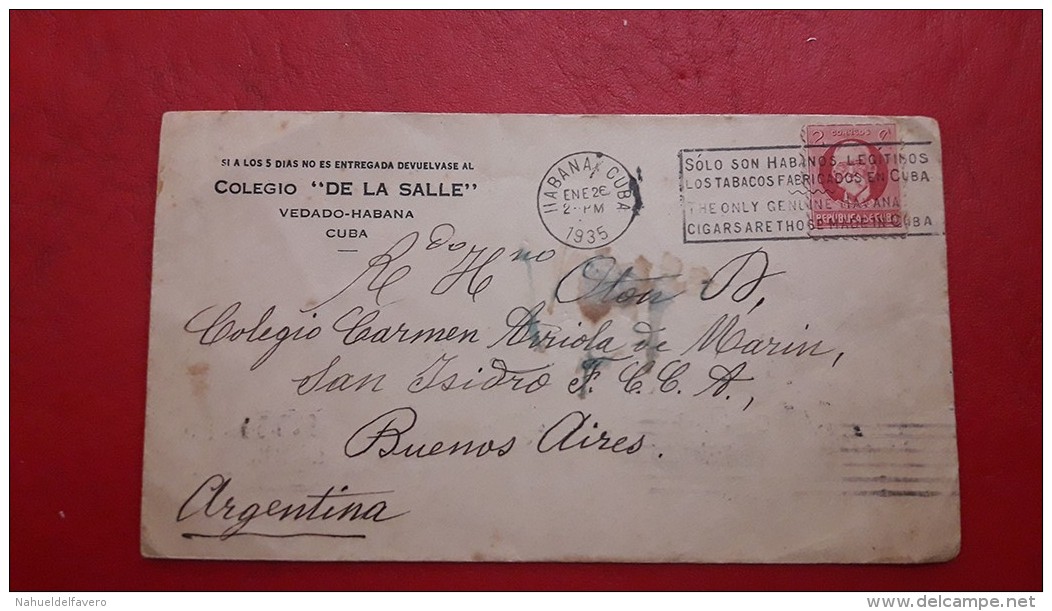 SI A LOS 5 DIAS NO ES ENTREGADA DEVUELVASE AL
COLEGIO "DE LA SALLE"
VEDADO-HABANA
CUBA
HABANA, CUBA
ENE 26
2-PM
1935
SÓLO SON HABANOS LEGITIMOS
LOS TABACOS FABRICADOS EN CUBA
THE ONLY GENUINE HAVANA
CIGARS ARE THOSE MADE IN CUBA
2 CORREOS
REPUBLICA DE CUBA
Rdo Hno Otón D,
Colegio Carmen Arriola de Marin,
San Isidro F. C. C. A.,
Buenos Aires.
Argentina
Nahueldelfavero
delcampe.net